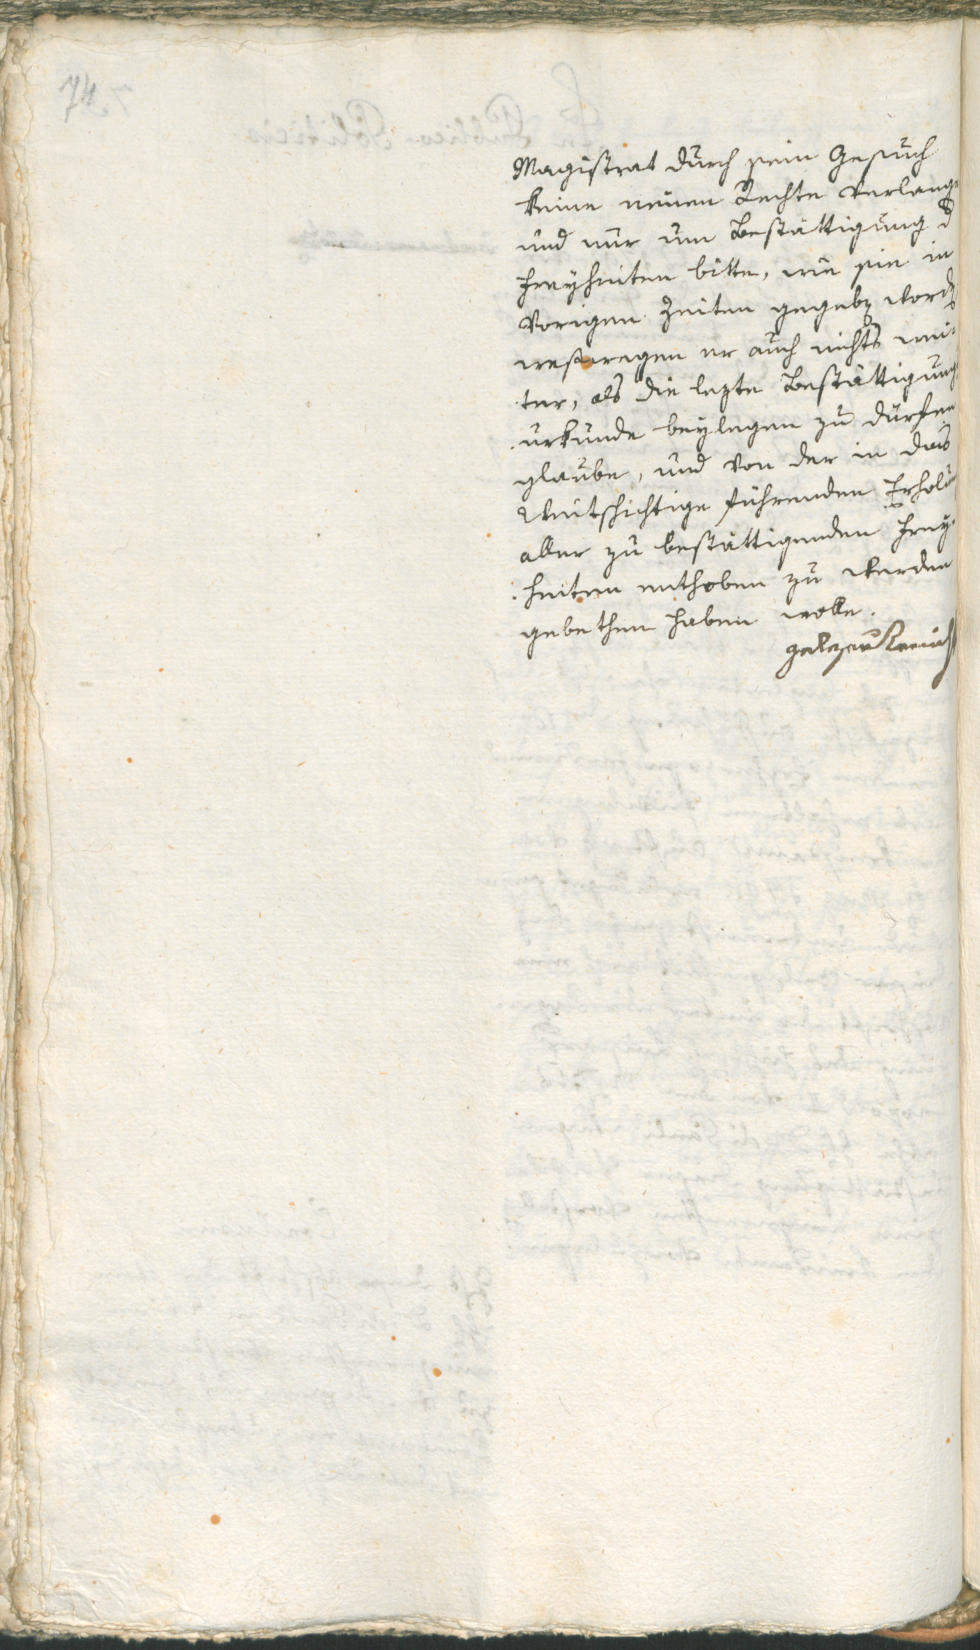 74
Magistrat durch sein Gesuch
keine neuen Rechte Verlange
und nur um Bestättigung d
Freyheiten bitte, wie sie in
Vorigen Zeiten gegeb word
wesswegen er auch nichts wei-
ter, als die lezte Bestättigung
urkunde beylegen zu dürfen
glaube, und von der in das
Weitschichtige führenden Erholu
aller zu bestättigenden Frey-
heiten enthoben zu werden
gebethen haben wolle.